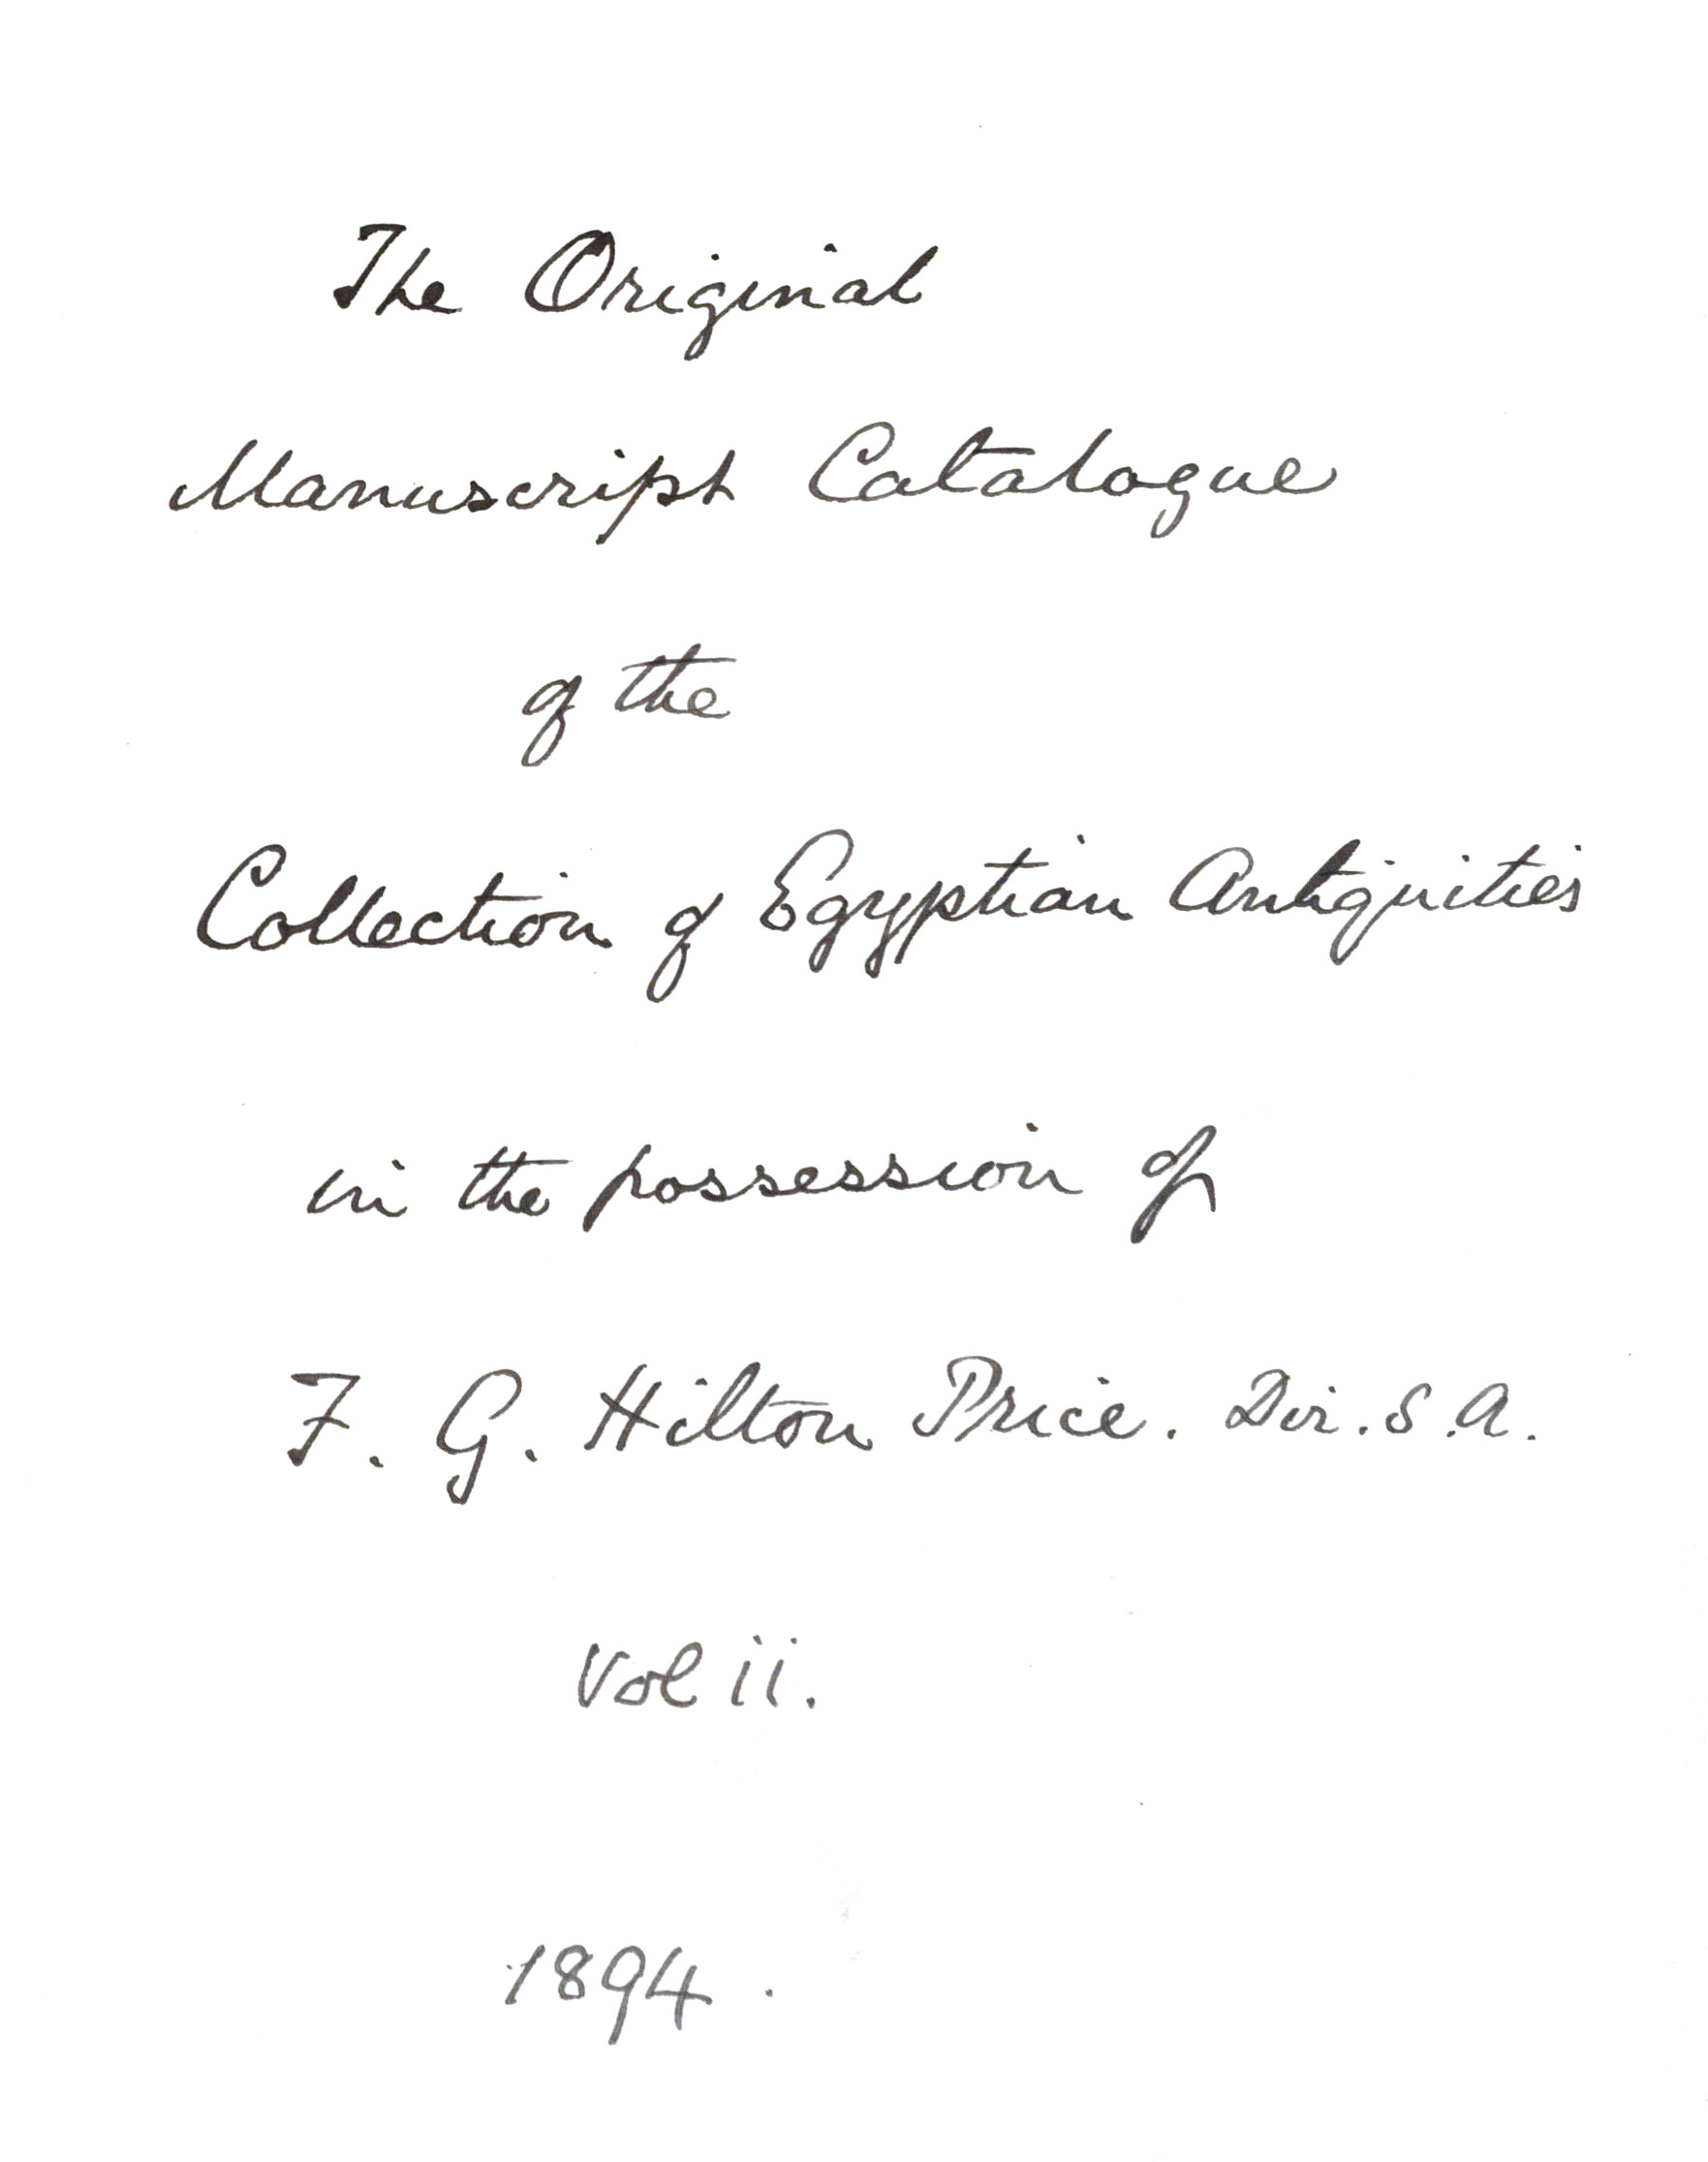 The Original
Manuscript Catalogue
of the
Collection of Egyptian Antiquities
in the possession of
F. G. Hilton Price. Dir. S.A.
Vol ii.
1894.